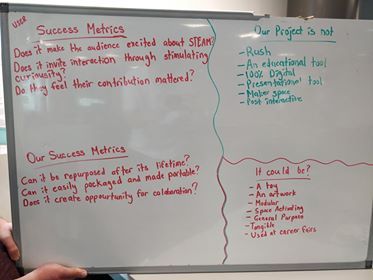 USER
Success Metrics
Does it make the audience excited about STEAM?
Does it invite interaction through stimulating
curiousity?
Do they feel their contribution mattered?
Our Project is not
- Rush
- An educational tool
- 100% Digital
- Presentational tool
- Maker space
- Post interactive
Our Success Metrics
Can it be repurposed after its lifetime?
Can it easily packaged and made portable?
Does it create oppourtunity for colaboration?
It could be?
- A toy
- An artwork
- Modular
- Space Activating
- General Purpose
- Tangible
- Used at career fairs